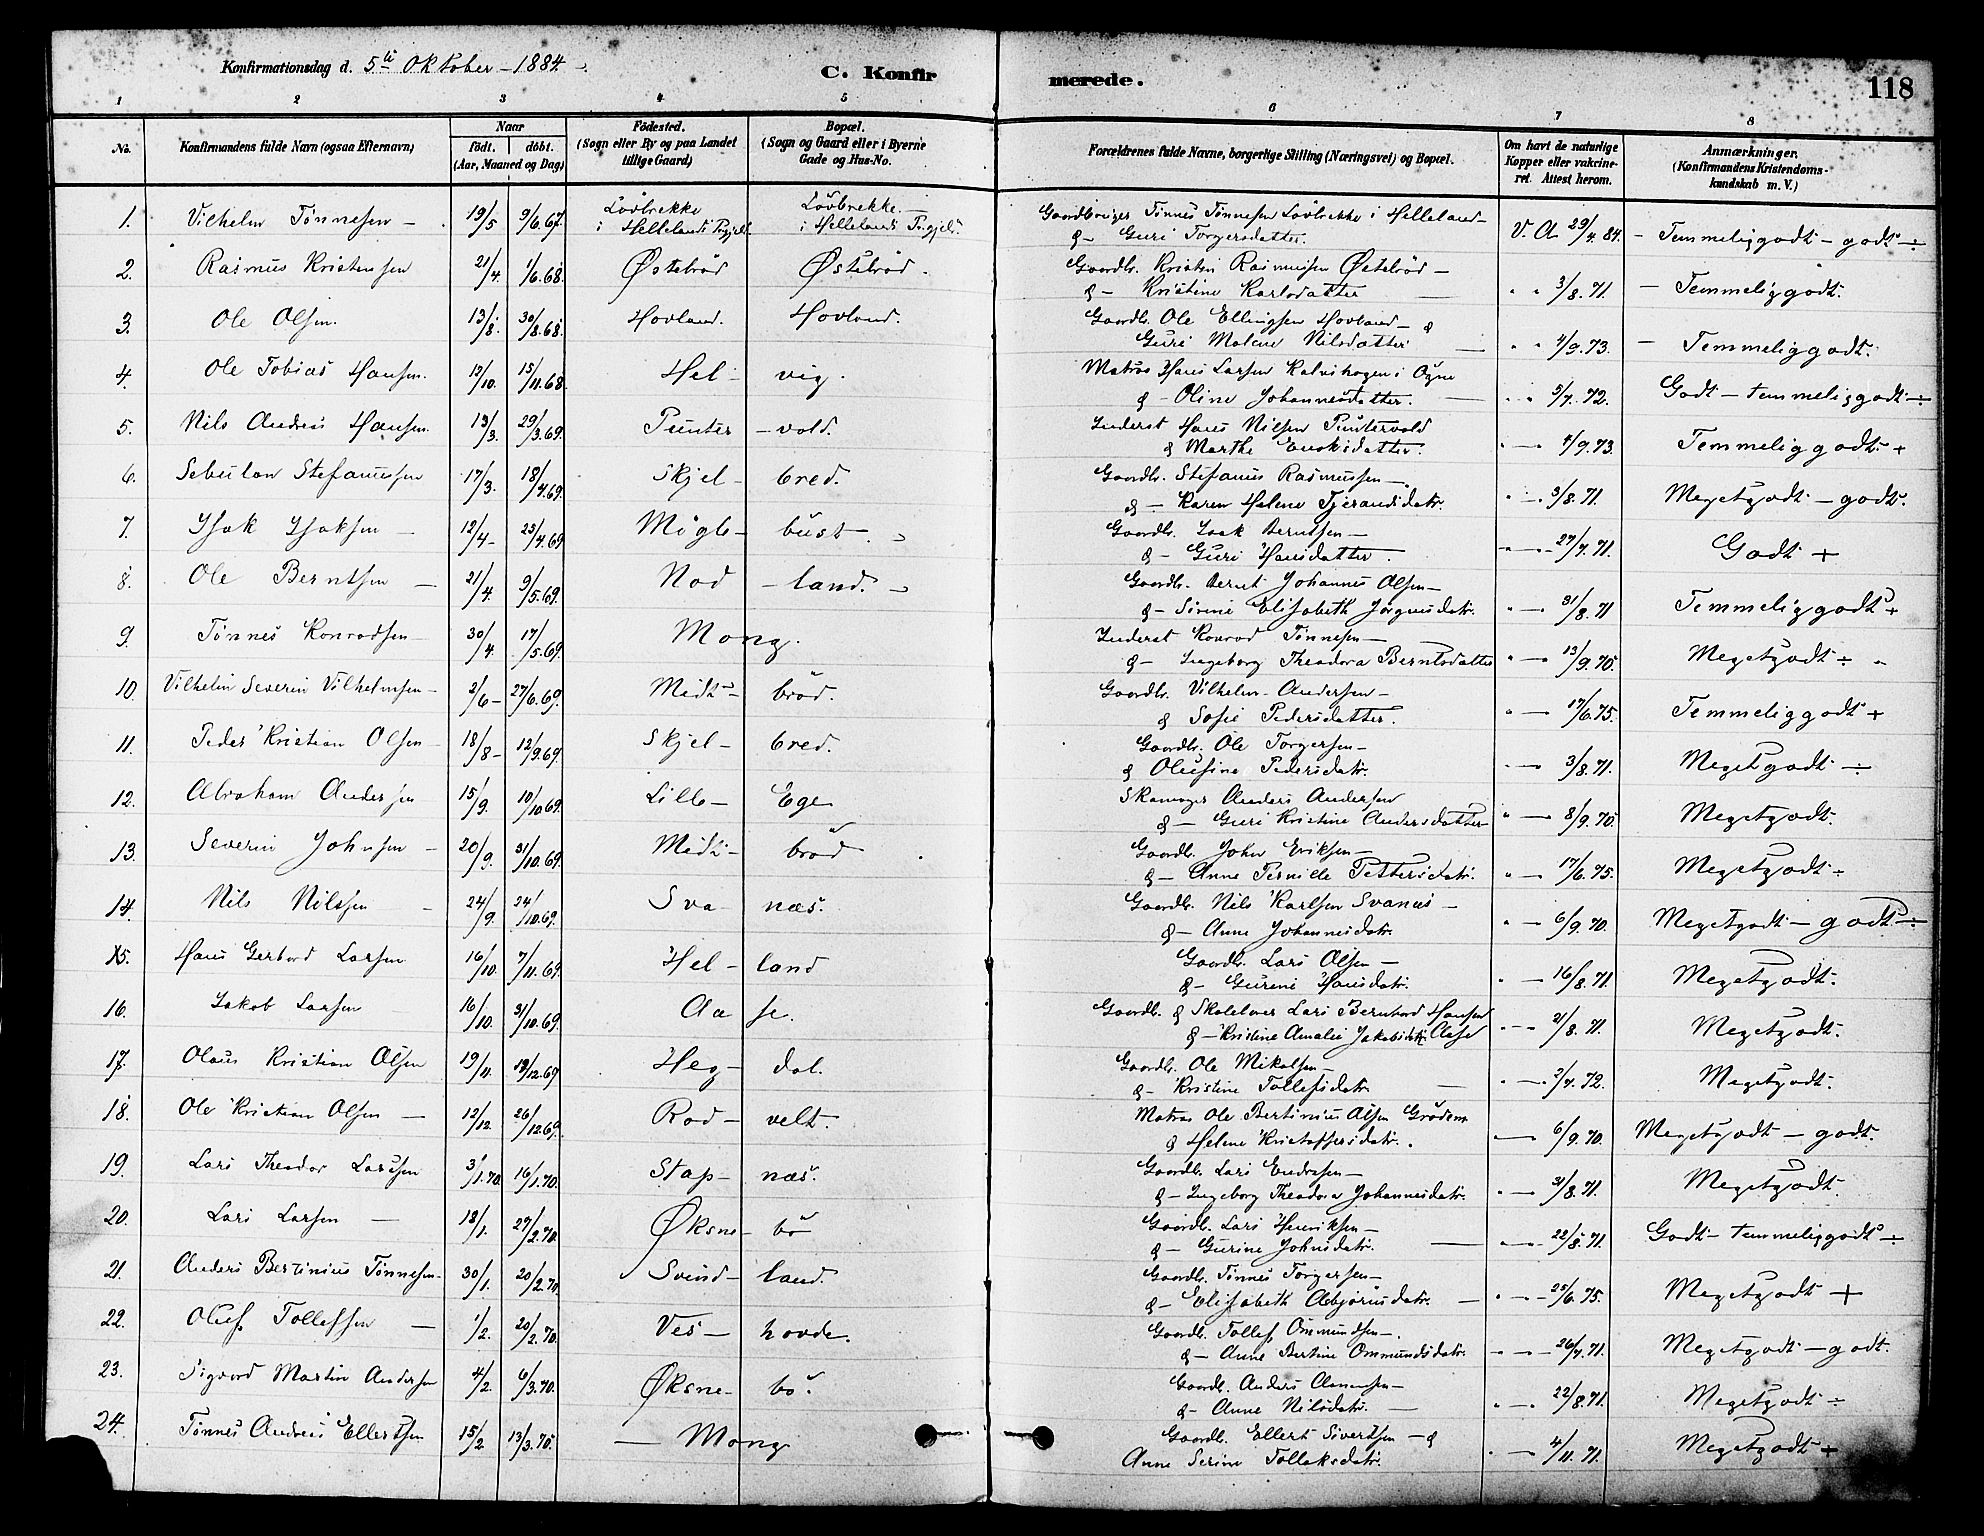 Konfirmationsdag d. 5te Oktober - 1884.
C. Konfirmerede.
118
1 2 3 4 5 6 7 8
No. Konfirmandens fulde Navn (ogsaa Efternavn) Naar födt. döbt. (Aar, Maaned og Dag) Födested. (Sogn eller By og paa Landet tillige Gaard) Bopæl. (Sogn og Gaard eller i Byerne Gade og Hus-No. Forældrenes fulde Navne, borgerlige Stilling (Næringsvei) og Bopæl. Om havt de naturlige Kopper eller vakcineret. Attest herom. Anmærkninger. (Konfirmandens Kristendomskundskab m. V.)
1. Vilhelm Tønnesen - 19/5 9/6.67. Løvbrekke i Hellelands Prgjeld. Løvbrekke. - i Hellelands Prgjeld. Gaardbruger Tønnes Tønnesen Løvbrekke i Helleland -
& - Guri Torgersdatter. V. A. 29/4.84. - Temmeliggodt - godt ÷
2. Rasmus Kristensen 21/4. 1/6.68. Østebrød Østebrød. Gaardb. Kristen Rasmussen Østebrød -
& - Kristine Karlsdatter - " " 3/8.71. - Temmeliggodt.
3. Ole Olsen. 13/8. 30/8.68. Hovland. Hovland. Gaardb. Ole Ellingsen Hovland - &
Guri Malene Nilsdatter - " " 4/9.73. - Temmeliggodt.
4. Ole Tobias Hansen. 13/10. 15/11.68. Hel - vig. Matros Hans Larsen Kalvehagen i Ogne
& - Oline Johannesdatter. - " - 5/7.72. Godt - temmeliggodt ÷
5. Nils Andreas Hansen. 13/3. 29/3.69. Punter - vold. Inderst Hans Nilsen Puntervold
& Marthe Enoksdatter. " - 4/9.73. Temmeliggodt +
6. Sebulon Stefanussen 17/3. 18/4.69. Skjel - bred. Gaardb. Stefanus Rasmussen -
& - Karen Helene Tjerandsdatr. " - 3/8.71. Megetgodt - godt.
7. Isak Isaksen - 12/4 - 23/4.69 Mögle - bust. Gaardb. Isak Berntsen -
& - Guri Hansdatter. " - 27/7.71. Godt +
8. Ole Berntsen - 21/4. 9/5.69. Nod - land. Gaardb. Bernt Johannes Olsen -
& - Sirine Elisabeth Jörginsdatr. " - 31/8.71 Temmeliggodt +
9. Tönnes Konradsen - 30/4. 17/5.69. Mong. Inderst Konrad Tönnesen -
& - Ingeborg Theodora Berntsdatter " - 13/9.70. Megetgodt ÷
10. Vilhelm Severin Vilhelmsen - 2/6 - 27/6.69. Midt - bröd. Gaardb. Vilhelm Andersen -
& Sofie Pedersdatter. " - 17/6.75. Temmeliggodt +
11. Peder Kristian Olsen - 18/8 - 12/9.69. Skjel - bred. Gaardb. Ole Torgersen -
& Olufine Pedersdatr. " - 3/8.71. Megetgodt ÷
12. Abraham Andersen 15/9. 10/10.69. Lille - Ege Skomager Anders Andersen
& - Guri Kristine Andersdatter " - 8/9.70. Megetgodt.
13. Severin Johnsen - 20/9. 31/10.69. Midt - bröd Gaardb. John Eriksen -
& - Anne Pernille Pettersdatr. " - 17/6.75. Megetgodt ÷
14. Nils Nilssen - 24/9. 24/10.69. Sva - næs. Gaardb. Nils Karlsen Svanes -
& - Anne Johannesdatr. " - 6/9.70. Megetgodt - godt ÷
15. Hans Gerhard Larsen 16/10. 7/11.69. Hel - land Gaardb. Lars Olsen -
& - Gurine Hansdatr. " - 16/8.71. Megetgodt.
16. Jakob Larsen - 16/10. 31/10.69. Aa - se. Gaardb. & Skolelærer Lars Bernhard Hansen
& - Kristine Amalie Jakobsdatr. Aase " - 21/8.71. Megetgodt.
17. Olaus Kristian Olsen 19/11. 19/12.69 Heg - dal. Gaardb. Ole Mikalsen -
& - Kristine Tollefsdatr. - " - 2/7.72. Megetgodt.
18. Ole Kristian Olsen - 12/12. 26/12.69. Rod - velt. Matros Ole Bertinius Olsen Grödem
& Helene Kristoffersdatr. " - 6/9.70. Megetgodt - godt.
19. Lars Theodor Larssen 3/1.70. 16/1.70. Stap - næs. Gaardb. Lars Endresen -
& - Ingeborg Theodora Johannesdatr. " - 31/8.71. Megetgodt.
20. Lars Larsen - 18/1. 27/2.70. Øksne - bö Gaardb. Lars Henriksen -
& - Gurine Johnsdatr. - " - 22/8.71. Godt - temmeliggodt ÷
21. Anders Bertinius Tönnesen - 30/1. 20/2.70. Svind - land. Gaardb. Tönnes Torgersen -
& - Elisabeth Asbjørnsdatr. - " - 25/6.75. Megetgodt +
22. Oluf Tollefsen - 1/2. 20/2.70. Ves - hovde. Gaardb. Tollef Ommundsen -
& - Anne Bertine Ommundsdatr. " - 26/7.71. Megetgodt - godt.
23. Sigvard Martin Andersen 4/2. 6/3.70. Øksne - bö. Gaardb. Anders Aanensen -
& - Anne Nilsdatr. - " - 22/8.71. Megetgodt ÷
24. Tönnes Andreas Ellertsen 15/2. 13/3.70. - Mong Gaardb. Ellert Sivertsen - &
Anne Serine Tollaksdatr. " - 4/11.71. Megetgodt +